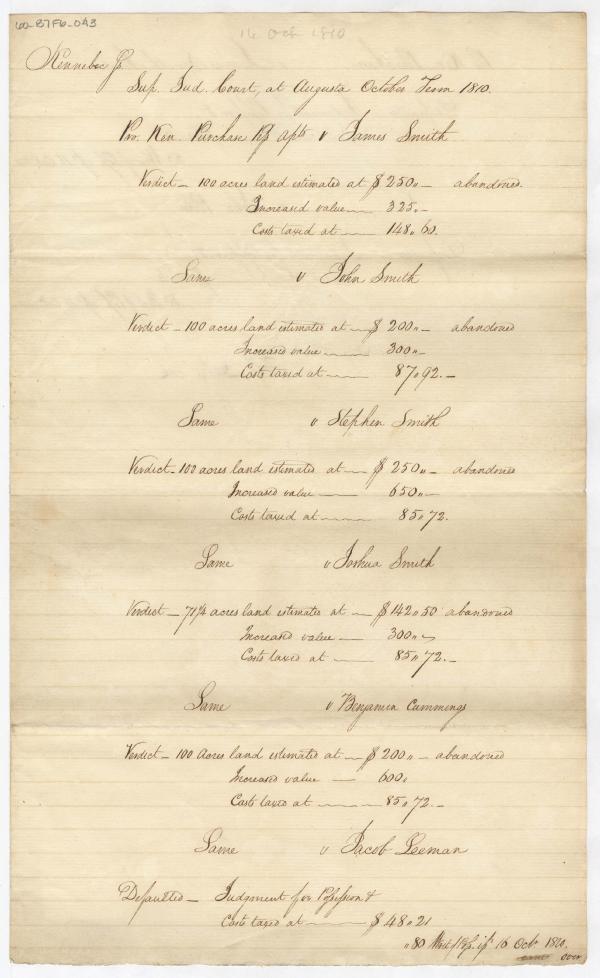 60_B7F6_043
16 Oct 1810
Kennebec Js.
Sup. Jud. Court, at Augusta October Term 1810.
Pro. Ken. Purchase Pffs apts v James Smith
Verdict — 100 acres land estimated at $ 250 " — abandoned.
Increased value — 325 " —
Costs taxed at — 148 " 60.
Same v John Smith
Verdict — 100 acres land estimated at — $ 200 " — abandoned
Increased value — 300 " —
Costs taxed at — 87 " 92. —
Same v Stephen Smith
Verdict — 100 acres land estimated at — $ 250 " — abandoned
Increased value — 650 " —
Costs taxed at — 85 " 72.
Same v Joshua Smith
Verdict — 71 1/4 acres land estimated at — $ 142 " 50 abandoned
Increased value — 300 " —
Costs taxed at — 85 " 72. —
Same v Benjamin Cummings
Verdict — 100 Acres land estimated at — $ 200 " — abandoned
Increased value — 600 "
Costs taxed at — 85 " 72 —
Same v Jacob Leeman
Defaulted — Judgment for Possession &
Costs taxed at — $ 48 " 21
" 80 16 Octr. 1810.
over